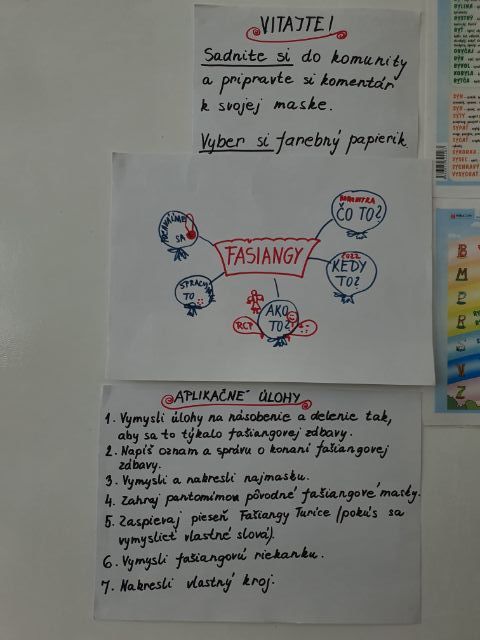 VITAJTE!
Sadnite si do komunity
a pripravte si komentár
k svojej maske.
Vyber si farebný papierik.
KONKRÉTKA
ČO TO?
FAŠIANGY
2022
KEDY
TO?
SPRACUJ
TO
AKO
TO?
RCP
APLIKAČNÉ ÚLOHY
1. Vymysli úlohy na násobenie a delenie tak,
aby sa to týkalo fašiangovej zábavy.
2. Napíš oznam a správu o konaní fašiangovej
zábavy.
3. Vymysli a nakresli najmasku.
4. Zahraj pantomímou pôvodné fašiangové masky.
5. Zaspievaj pieseň Fašiangy Turíce (pokús sa
vymyslieť vlastné slová).
6. Vymysli fašiangovú riekanku.
7. Nakresli vlastný kroj.
B
M
P
R
S
V
Z